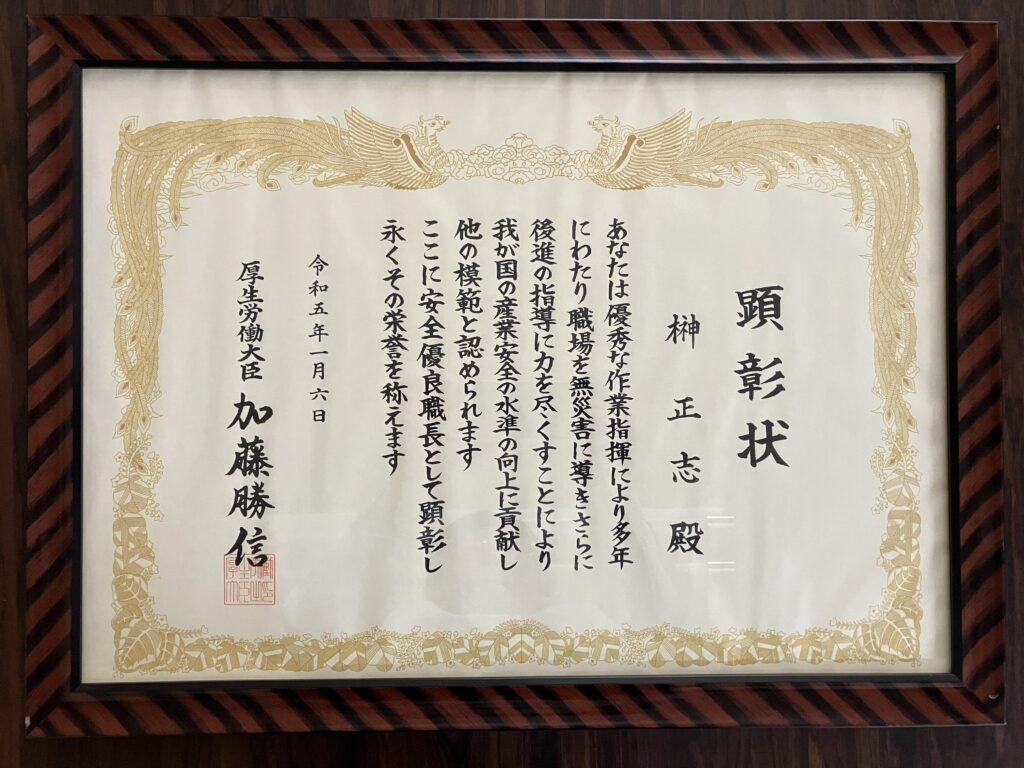 顕彰状
榊正志殿
あなたは優秀な作業指揮により多年
にわたり職場を無災害に導きさらに
後進の指導に力を尽くすことにより
我が国の産業安全の水準の向上に貢献し
他の模範と認められます
ここに安全優良職長として顕彰し
永くその栄誉を称えます
令和五年一月六日
厚生労働大臣 加藤勝信